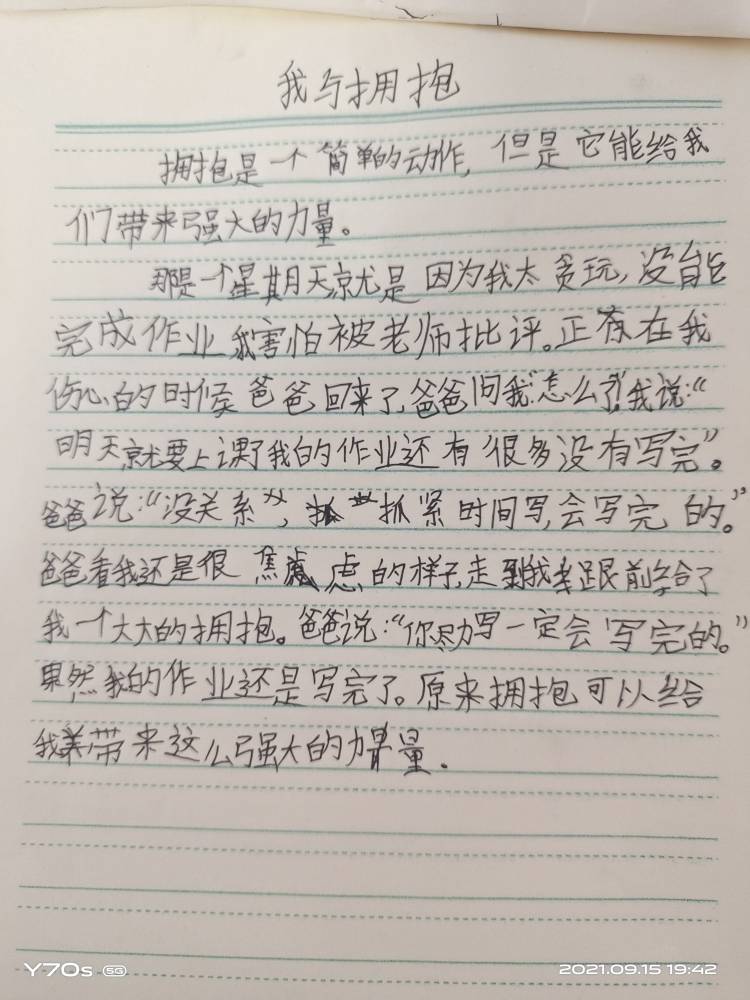 我与拥抱
拥抱是一个简单的动作,但是它能给我
们带来强大的力量。
那是一个星期天,就是因为我太贪玩,没能
完成作业我害怕被老师批评。正在我
伤心的时候爸爸回来了,爸爸问我“怎么了”我说:“
明天就要上课了我的作业还有很多没有写完”。
爸爸说:“没关系”,抓紧时间写,会写完的。”
爸爸看我还是很焦虑的样子,走到我跟前给了
我一个大大的拥抱。爸爸说:“你尽力写一定会写完的。”
果然我的作业还是写完了。原来拥抱可以给
我带来这么强大的力量.
Y70s 5G
2021.09.15 19:42